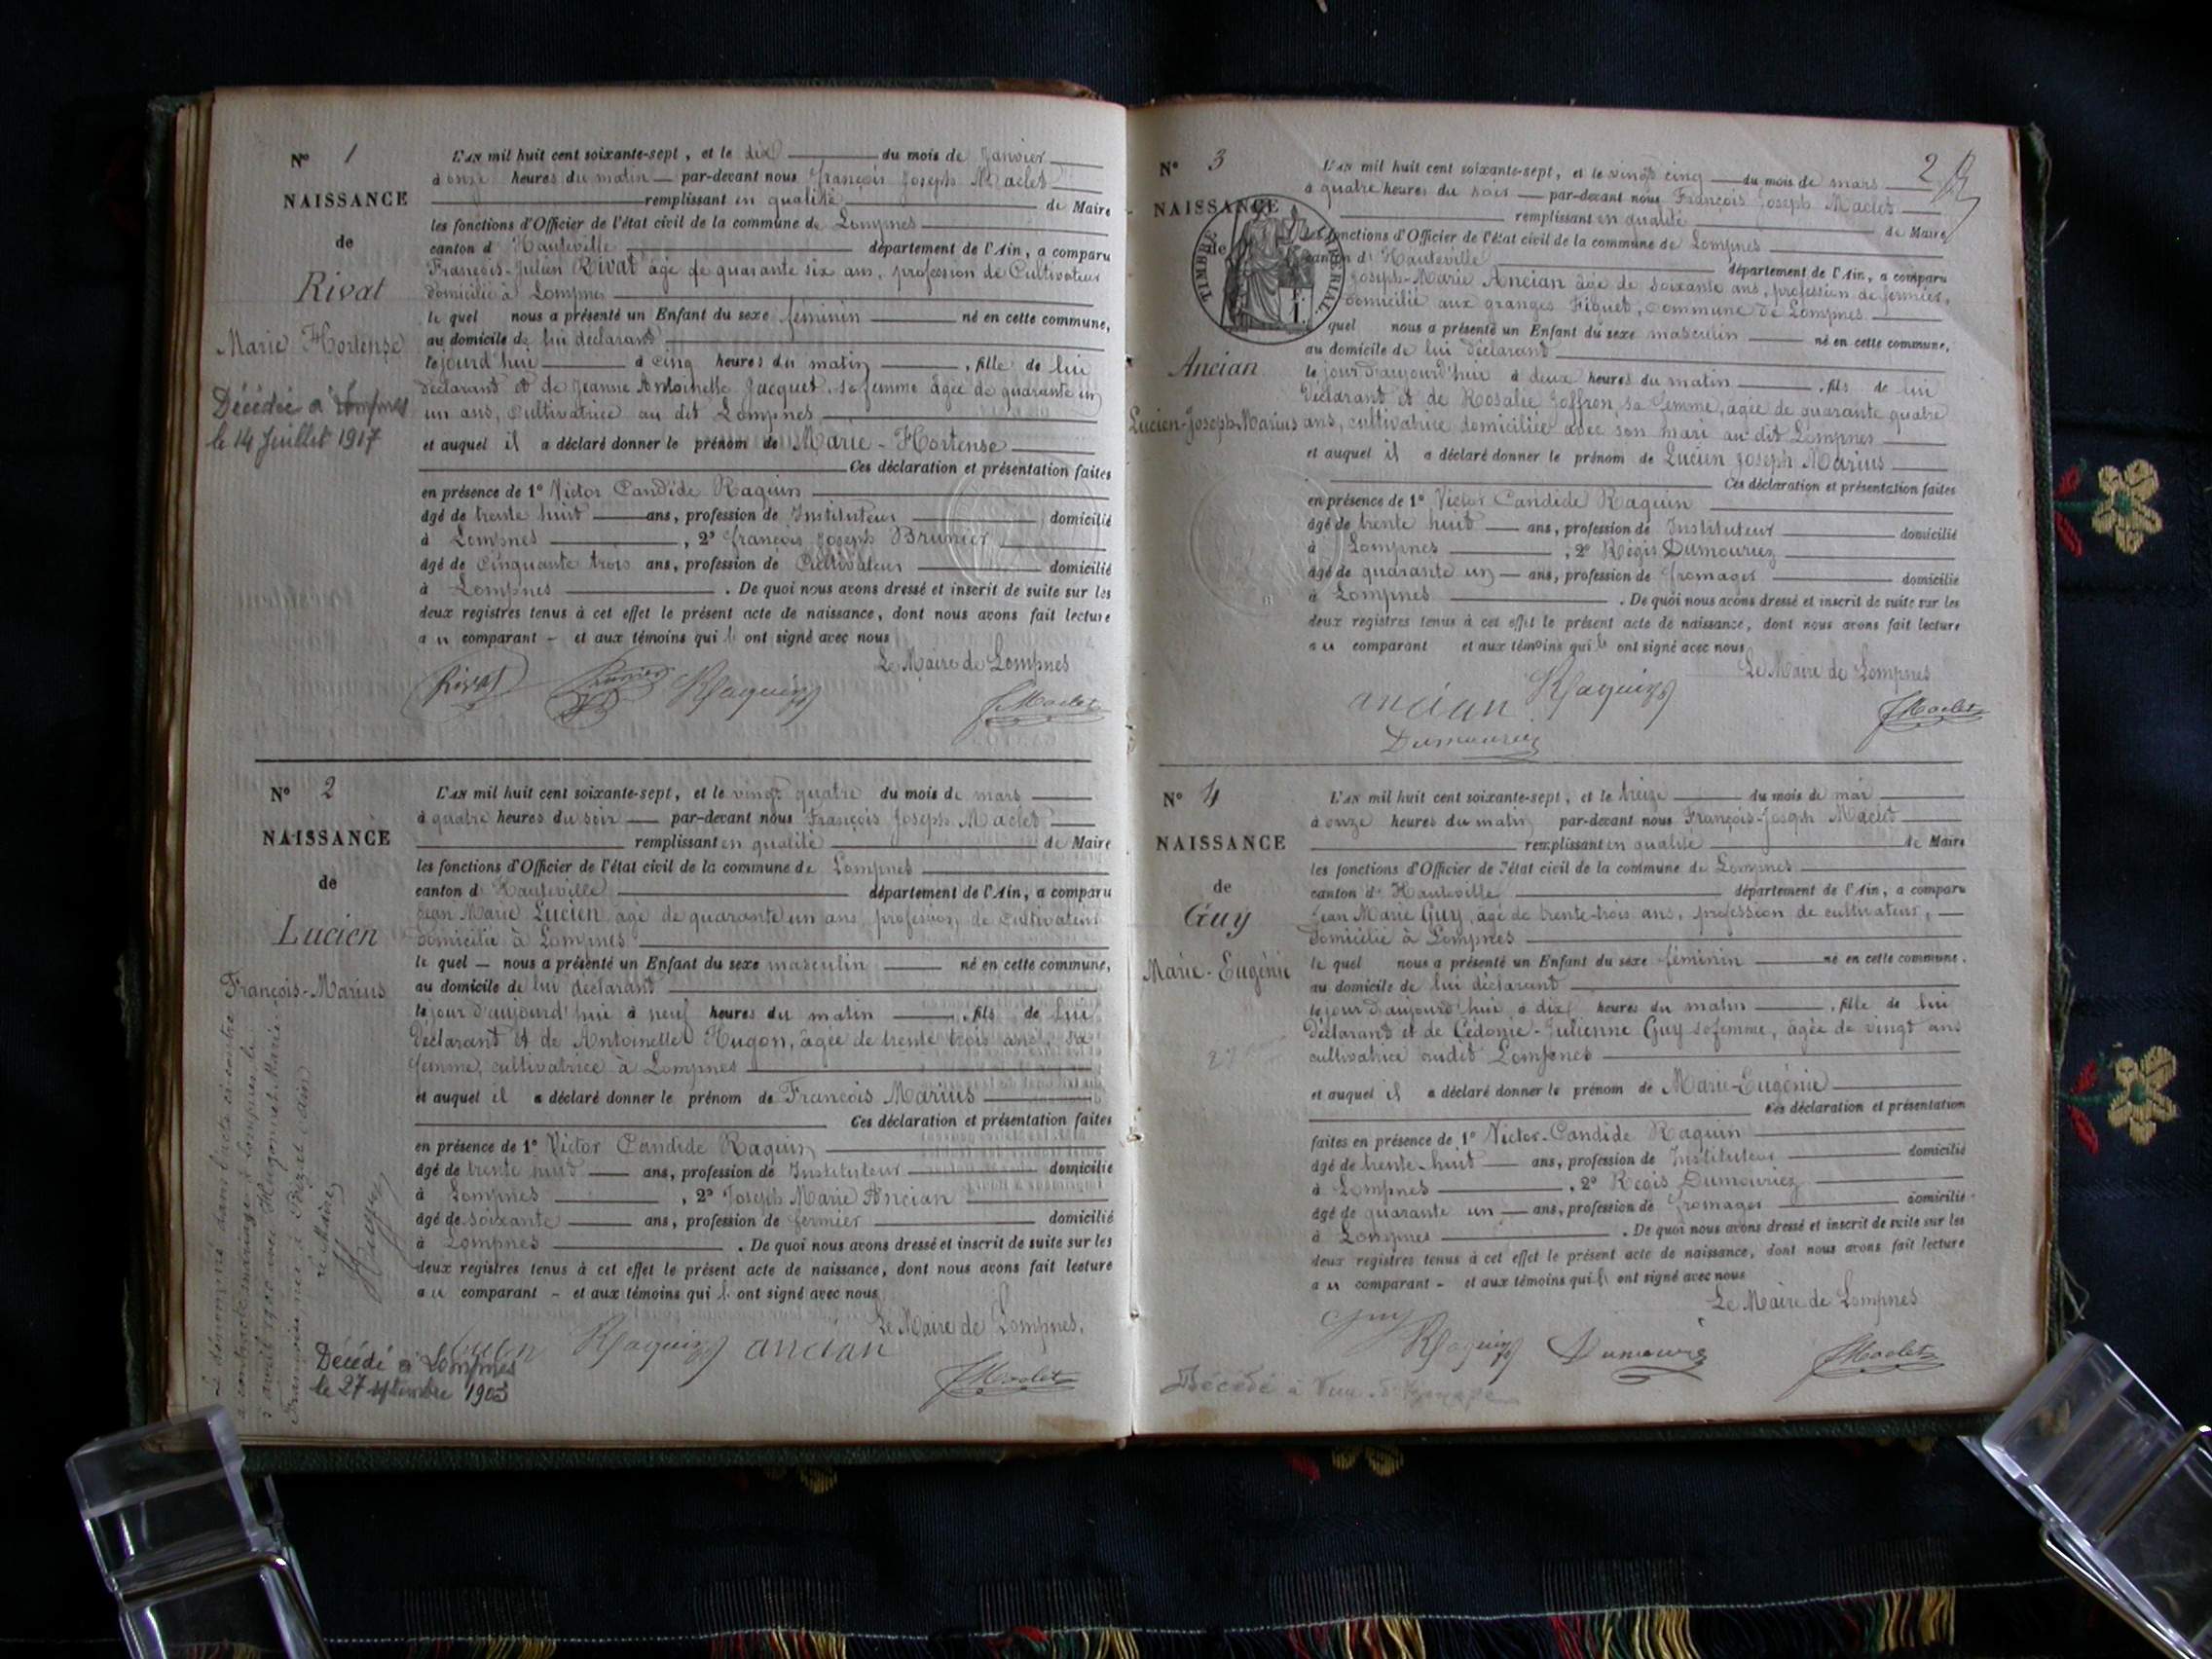 N° 1
NAISSANCE
de
Rivat
Marie Hortense
Décédée à Lompnes
le 14 Juillet 1917
L'AN mil huit cent soixante-sept, et le dix du mois de Janvier
à onze heures du matin par-devant nous François Joseph Maclet
remplissant en qualité de Maire
les fonctions d'Officier de l'état civil de la commune de Lompnes
canton d' Hauteville département de l'Ain, a comparu
François-Julien Rivat âgé de quarante six ans, profession de Cultivateur
domicilié à Lompnes
le quel nous a présenté un Enfant du sexe féminin né en cette commune,
au domicile de lui déclarant
le jourd'hui à cinq heures du matin, fille de lui
déclarant et de Jeanne Antoinette Jacquet, sa femme âgée de quarante un
un ans, cultivatrice au dit Lompnes
et auquel il a déclaré donner le prénom de Marie-Hortense
Ces déclaration et présentation faites
en présence de 1° Victor Candide Raquin
âgé de trente huit ans, profession de Instituteur domicilié
à Lompnes, 2° François Joseph Brunier
âgé de Cinquante trois ans, profession de Cultivateur domicilié
à Lompnes. De quoi nous avons dressé et inscrit de suite sur les
deux registres tenus à cet effet le présent acte de naissance, dont nous avons fait lecture
au comparant - et aux témoins qui ont signé avec nous
Le Maire de Lompnes
Rivat Brunier Raquin
J Maclet
N° 2
NAISSANCE
de
Lucien
François-Marius
L'AN mil huit cent soixante-sept, et le vingt quatre du mois de mars
à quatre heures du soir par-devant nous François Joseph Maclet
remplissant en qualité de Maire
les fonctions d'Officier de l'état civil de la commune de Lompnes
canton d' Hauteville département de l'Ain, a comparu
Jean Marie Lucien âgé de quarante un ans, profession de cultivateur
domicilié à Lompnes
le quel - nous a présenté un Enfant du sexe masculin né en cette commune,
au domicile de lui déclarant
le jour d'aujourd'hui à neuf heures du matin, fils de lui
déclarant et de Antoinette Hugon, âgée de trente trois ans, sa
femme, cultivatrice à Lompnes
et auquel il a déclaré donner le prénom de François Marius
Ces déclaration et présentation faites
en présence de 1° Victor Candide Raquin
âgé de trente huit ans, profession de Instituteur domicilié
à Lompnes, 2° Joseph Marie Ancian
âgé de soixante ans, profession de fermier domicilié
à Lompnes. De quoi nous avons dressé et inscrit de suite sur les
deux registres tenus à cet effet le présent acte de naissance, dont nous avons fait lecture
au comparant - et aux témoins qui ont signé avec nous
Le Maire de Lompnes,
Raquin ancian
J Maclet
Décédé à Lompnes
le 27 septembre 1903
L dénommé dans l'acte ci-contre
a contracté mariage à Lompnes le
avec Hugonnet Marie-
le Maire
2
N° 3
NAISSANCE
de
TIMBRE IMPÉRIAL
Ancian
Lucien-Joseph-Marius
L'AN mil huit cent soixante-sept, et le vingt cinq du mois de mars
à quatre heures du soir par-devant nous François Joseph Maclet
remplissant en qualité de Maire
les fonctions d'Officier de l'état civil de la commune de Lompnes
canton d' Hauteville département de l'Ain, a comparu
Joseph-Marie Ancian âgé de soixante ans, profession de fermier,
domicilié aux granges Figuet, commune de Lompnes
quel nous a présenté un Enfant du sexe masculin né en cette commune,
au domicile de lui déclarant
le jour d'aujourd'hui à deux heures du matin, fils de lui
déclarant et de Rosalie Joffron, sa femme, âgée de quarante quatre
ans, cultivatrice domiciliée avec son mari au dit Lompnes
et auquel il a déclaré donner le prénom de Lucien Joseph Marius
Ces déclaration et présentation faites
en présence de 1° Victor Candide Raquin
âgé de trente huit ans, profession de Instituteur domicilié
à Lompnes, 2° Régis Dumouriez
âgé de quarante un ans, profession de fromager domicilié
à Lompnes. De quoi nous avons dressé et inscrit de suite sur les
deux registres tenus à cet effet le présent acte de naissance, dont nous avons fait lecture
au comparant et aux témoins qui ont signé avec nous
Le Maire de Lompnes
ancian Raquin
J Maclet
Dumouriez
N° 4
NAISSANCE
de
Guy
Marie-Eugénie
L'AN mil huit cent soixante-sept, et le treize du mois de mai
à onze heures du matin par-devant nous François-Joseph Maclet
remplissant en qualité de Maire
les fonctions d'Officier de l'état civil de la commune de Lompnes
canton d' Hauteville département de l'Ain, a comparu
Jean Marie Guy, âgé de trente-trois ans, profession de cultivateur,
domicilié à Lompnes
le quel nous a présenté un Enfant du sexe féminin né en cette commune,
au domicile de lui déclarant
le jour d'aujourd'hui à dix heures du matin, fille de lui
déclarant et de Cédonie-Julienne Guy sa femme, âgée de vingt ans
cultivatrice audit Lompnes
et auquel il a déclaré donner le prénom de Marie-Eugénie
Ces déclaration et présentation
faites en présence de 1° Victor-Candide Raquin
âgé de trente-huit ans, profession de Instituteur domicilié
à Lompnes, 2° Régis Dumouriez
âgé de quarante un ans, profession de fromager domicilié
à Lompnes. De quoi nous avons dressé et inscrit de suite sur les
deux registres tenus à cet effet le présent acte de naissance, dont nous avons fait lecture
au comparant - et aux témoins qui ont signé avec nous
Le Maire de Lompnes
Guy
Raquin Dumouriez
J Maclet
Décédé à